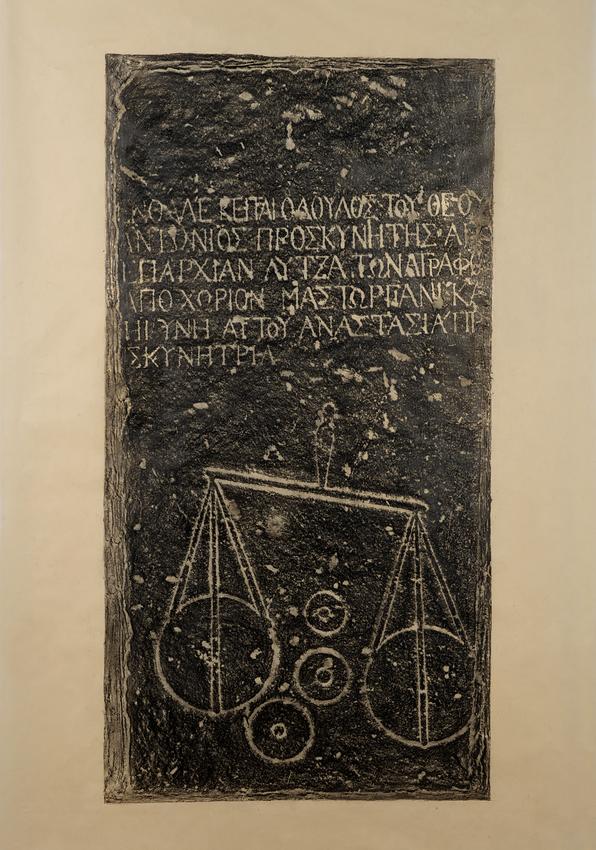 ΕΝΘΑΔΕ ΚΕΙΤΑΙ Ο ΔΟΥΛΟΣ ΤΟΥ ΘΕΟΥ
ΑΝΤΩΝΙΟΣ ΠΡΟΣΚΥΝΗΤΗΣ ΑΠΟ
ΕΠΑΡΧΙΑΝ ΛΥΤΖΑ ΤΩΝ ΑΓΡΑΦΩ
ΑΠΟ ΧΟΡΙΟΝ ΚΑ
ΗΓΥΝΗ ΑΥΤΟΥ ΑΝΑΣΤΑΣΙΑ ΠΡ
ΣΚΥΝΗΤΡΙΑ